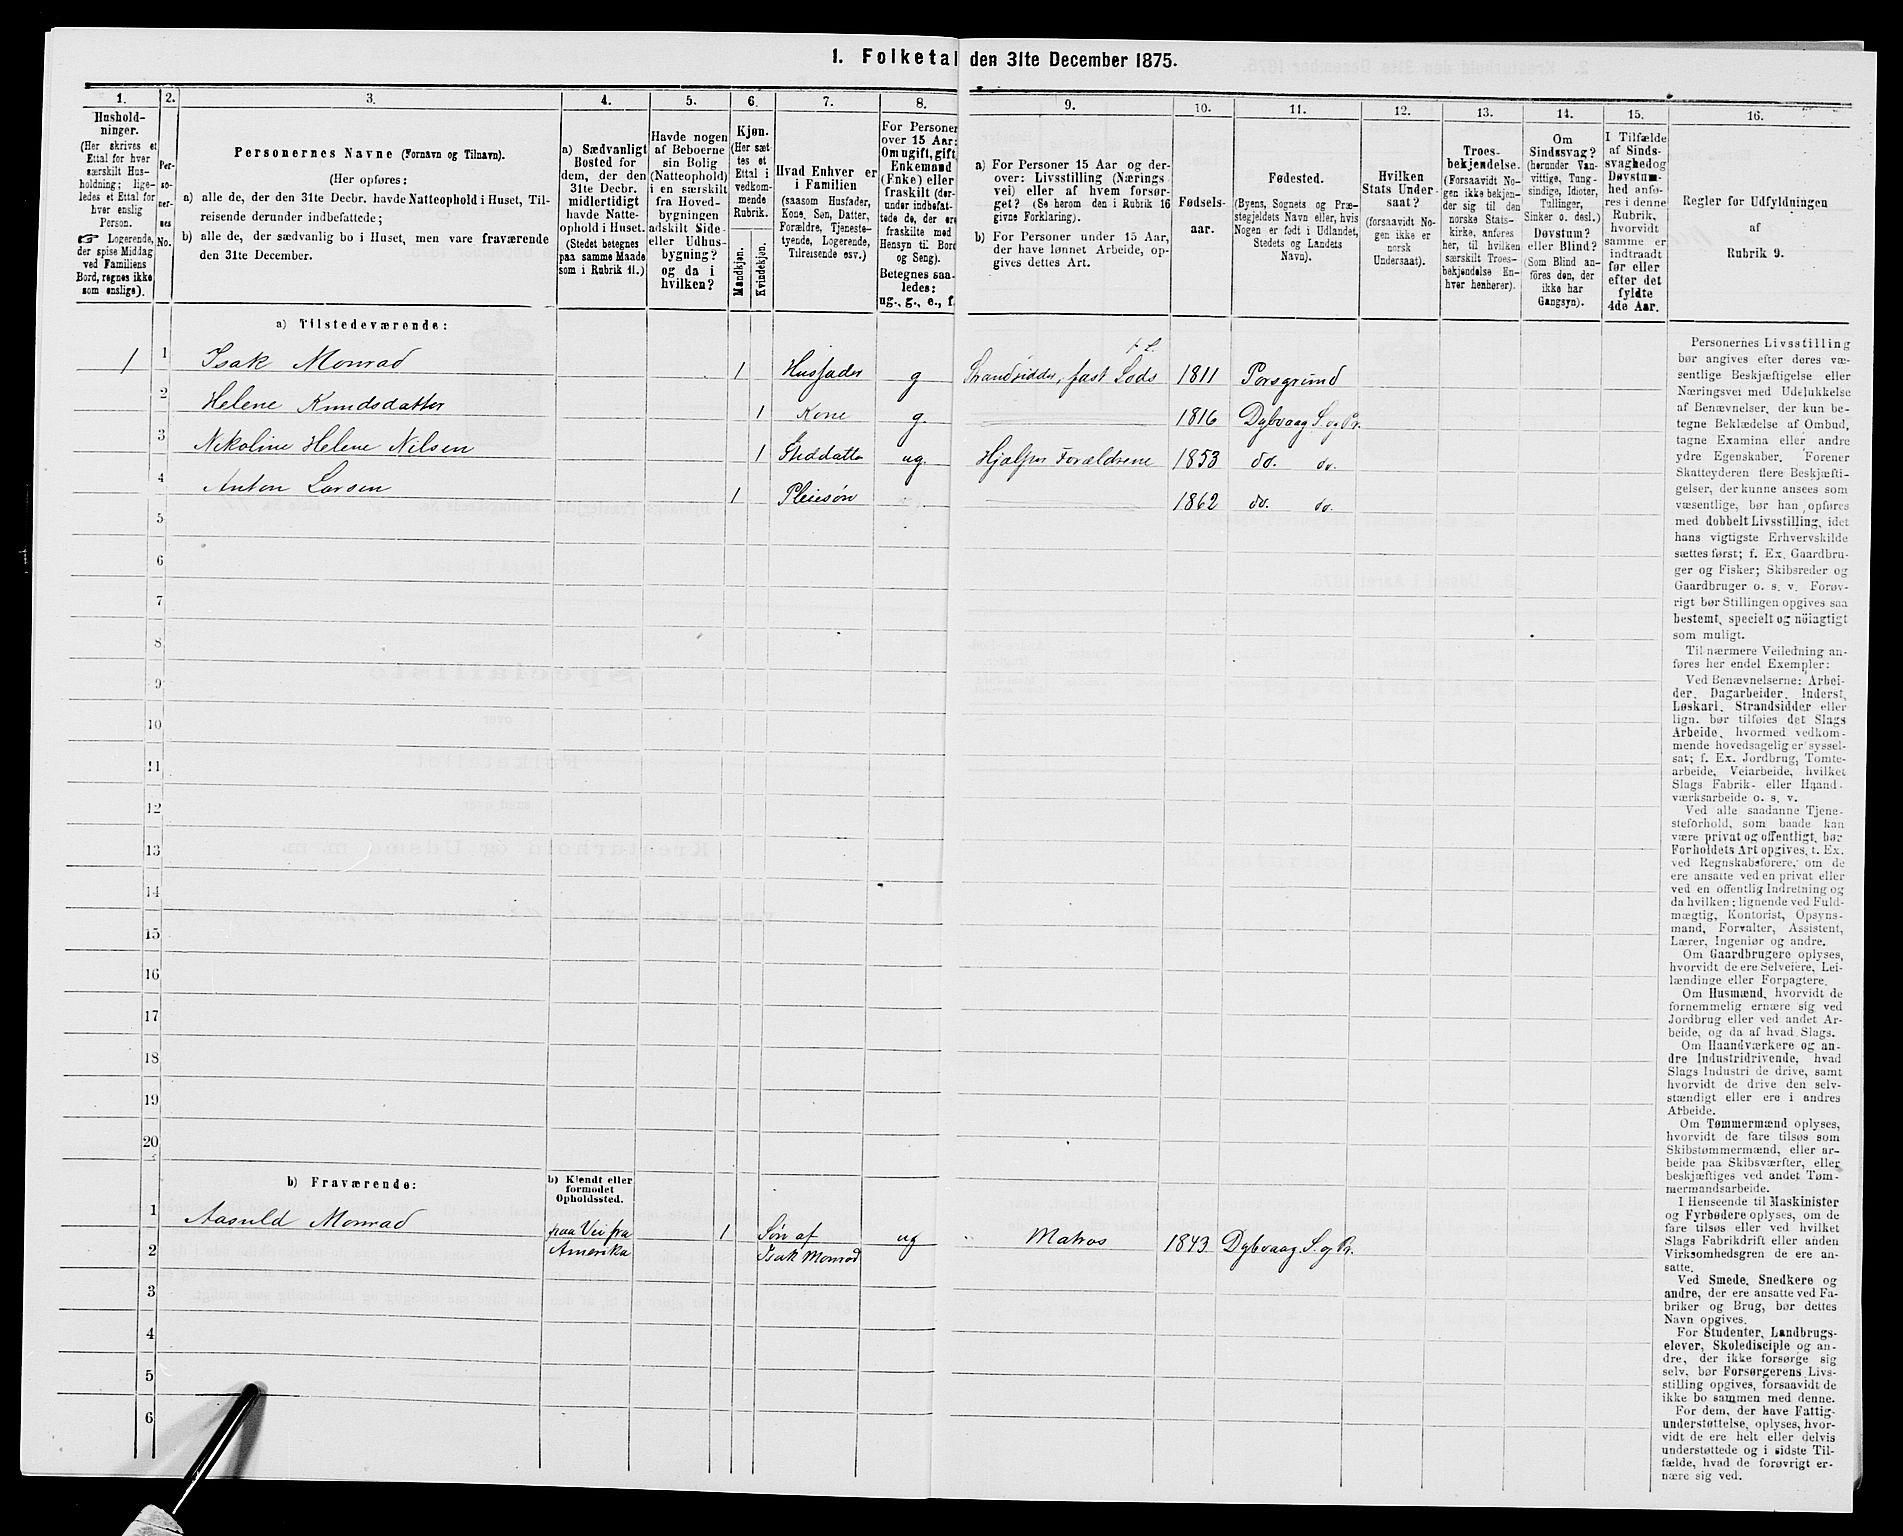 1. Folketal den 31te December 1875.
1.
Hushold-
ninger.
(Her skrives et
Ettal for hver
særskilt Hus-
holdning; lige-
ledes et Ettal for
hver enslig
Person.
☞ Logerende,
der spise Middag
ved Familiens
Bord, regnes ikke
som enslige).
2.
Per-
so-
ner-
nes
No.
3.
Personernes Navne (Fornavn og Tilnavn).
(Her opføres:
a) alle de, der den 31te Decbr. havde Natteophold i Huset, Til-
reisende derunder indbefattede;
b) alle de, der sædvanlig bo i Huset, men vare fraværende
den 31te December.
4.
a) Sædvanligt
Bosted for
dem, der den
31te Decbr.
midlertidigt
havde Natte-
ophold i Huset.
(Stedet betegnes
paa samme Maade
som i Rubrik 11.)
5.
Havde nogen
af Beboerne
sin Bolig
(Natteophold)
i en særskilt
fra Hoved-
bygningen
adskilt Side-
eller Udhus-
bygning?
og da i
hvilken?
6.
Kjøn.
(Her sæt
tes et
Ettal i
vedkom-
mende
Rubrik.
Mandkjøn.
Kvindekjøn.
7.
Hvad Enhver er
i Familien
(saasom Husfader,
Kone, Søn, Datter,
Forældre, Tjeneste-
tyende, Logerende,
Tilreisende osv.)
8.
For Personer
over 15 Aar:
Om ugift, gift,
Enkemand
(Enke) eller
fraskilt (der-
under indbefat-
tede de, der ere
fraskilte med
Hensyn til Bord
og Seng).
Betegnes saa-
ledes:
ug., g., e., f.
9.
a) For Personer 15 Aar og der-
over: Livsstilling (Nærings
vei) eller af hvem forsør-
get? (Se herom den i Rubrik 16
givne Forklaring).
b) For Personer under 15 Aar,
der have lønnet Arbeide, op-
gives dettes Art.
10.
Fødsels-
aar.
11.
Fødested.
(Byens, Sognets og Præ-
stegjeldets Navn eller, hvis
Nogen er født i Udlandet,
Stedets og Landets
Navn).
12.
Hvilken
Stats Under-
saat?
(forsaavidt No-
gen ikke er
norsk
Undersaat).
13.
Troes-
bekjendelse.
(Forsaavidt No-
gen ikke bekjen-
der sig til den
norske Stats-
kirke, anføres
her, til hvilken
særskilt Troes-
bekjendelse En-
hver henhører).
14.
Om
Sindssvag?
(herunder Van-
vittige, Tung-
sindige, Idioter,
Tullinger,
Sinker o. desl.)
Døvstum?
eller Blind?
(Som Blind an-
føres den, der
ikke har
Gangsyn).
15.
I Tilfælde
af Sinds-
svaghed og
Døvstum-
hed anfø-
res i denne
Rubrik,
hvorvidt
samme er
indtraadt
før eller
efter det
fyldte
4de Aar.
16.
Regler for Udfyldningen
af
Rubrik 9.
a) Tilstedeværende:
1 1 Isak Monrad 1 Husfader g Strandsidder, fast Lods 1811 Porsgrund
2 Helene Knudsdatter 1 Kone g. 1816 Dybvaag S. og Pr.
3 Nikoline Helene Nilsen 1 Steddatter ug. Hjælper Forældrene 1853 do. do.
4 Anton Larsen 1 Pleiesøn 1862 do. do.
5
6
7
8
9
10
11
12
13
14
15
16
17
18
19
20
b) Fraværende:
b) Kjendt eller
formodet
Opholdssted.
1 Aasuld Monrad paa Vei fra 1 Søn af ug Matros 1843 Dybvaag S. og Pr.
2 Amerika Isak Monrad
3
4
5
6
Personernes Livsstilling
bør angives efter deres væ-
sentlige Beskjæftigelse eller
Næringsvei med Udelukkelse
af Benævnelser, der kun be-
tegne Beklædelse af Ombud,
tagne Examina eller andre
ydre Egenskaber. Forener
Skatteyderen flere Beskjæfti-
gelser, der kunne ansees som
væsentlige, bør han opføres
med dobbelt Livsstilling, idet
hans vigtigste Erhvervskilde
sættes først; f. Ex. Gaardbru-
ger og Fisker; Skibsreder og
Gaardbruger o. s. v. Forøv-
rigt bør Stillingen opgives saa
bestemt, specielt og nöiagtigt
som muligt.
Til nærmere Veiledning an-
føres her endel Exempler:
Ved Benævnelserne: Arbei-
der, Dagarbeider, Inderst,
Løskarl, Strandsidder eller
lign. bør tilføies det Slags
Arbeide, hvormed vedkom-
mende hovedsagelig er syssel-
sat; f. Ex. Jordbrug, Tomte-
arbeide, Veiarbeide, hvilket
Slags Fabrik- eller Haand-
værksarbeide o. s. v.
Ved alle saadanne Tjene-
steforhold, som baade kan
være privat og offentligt, bør
Forholdets Art opgives, f. Ex.
ved Regnskabsførere, om de
ere ansatte ved en privat eller
ved en offentlig Indretning og
da hvilken; lignende ved Fuld-
mægtig, Kontorist, Opsyns-
mand, Forvalter, Assistent,
Lærer, Ingeniør og andre.
Om Gaardbrugere oplyses,
hvorvidt de ere Selveiere, Lei-
lændinge eller Forpagtere.
Om Husmænd, hvorvidt de
fornemmelig ernære sig ved
Jordbrug eller ved andet Ar-
beide, og da af hvad Slags.
Om Haandværkere og an-
dre Industridrivende, hvad
Slags Industri de drive, samt
hvorvidt de drive den selv-
stændigt eller ere i andres
Arbeide.
Om Tømmermænd oplyses,
hvorvidt de fare tilsøs som
Skibstømmermænd, eller ar-
beide paa Skibsværfter, eller
beskjæftiges ved andet Tøm-
mermandsarbeide.
I Henseende til Maskinister
og Fyrbødere oplyses, om de
fare tilsøs eller ved hvilket
Slags Fabrikdrift eller anden
Virksomhedsgren de ere an-
satte.
Ved Smede, Snedkere og
andre, der ere ansatte ved Fa-
briker og Brug, bør dettes
Navn opgives.
For Studenter, Landbrugs-
elever, Skoledisciple og an-
dre, der ikke forsørge sig
selv, bør Forsørgerens Livs-
stilling opgives, forsaavidt de
ikke bo sammen med denne.
For dem, der have Fattig-
understøttelse, oplyses, hvor-
vidt de ere helt eller delvis
understøttede og i sidste Til-
fælde, hvad de forøvrigt er-
nære sig ved.